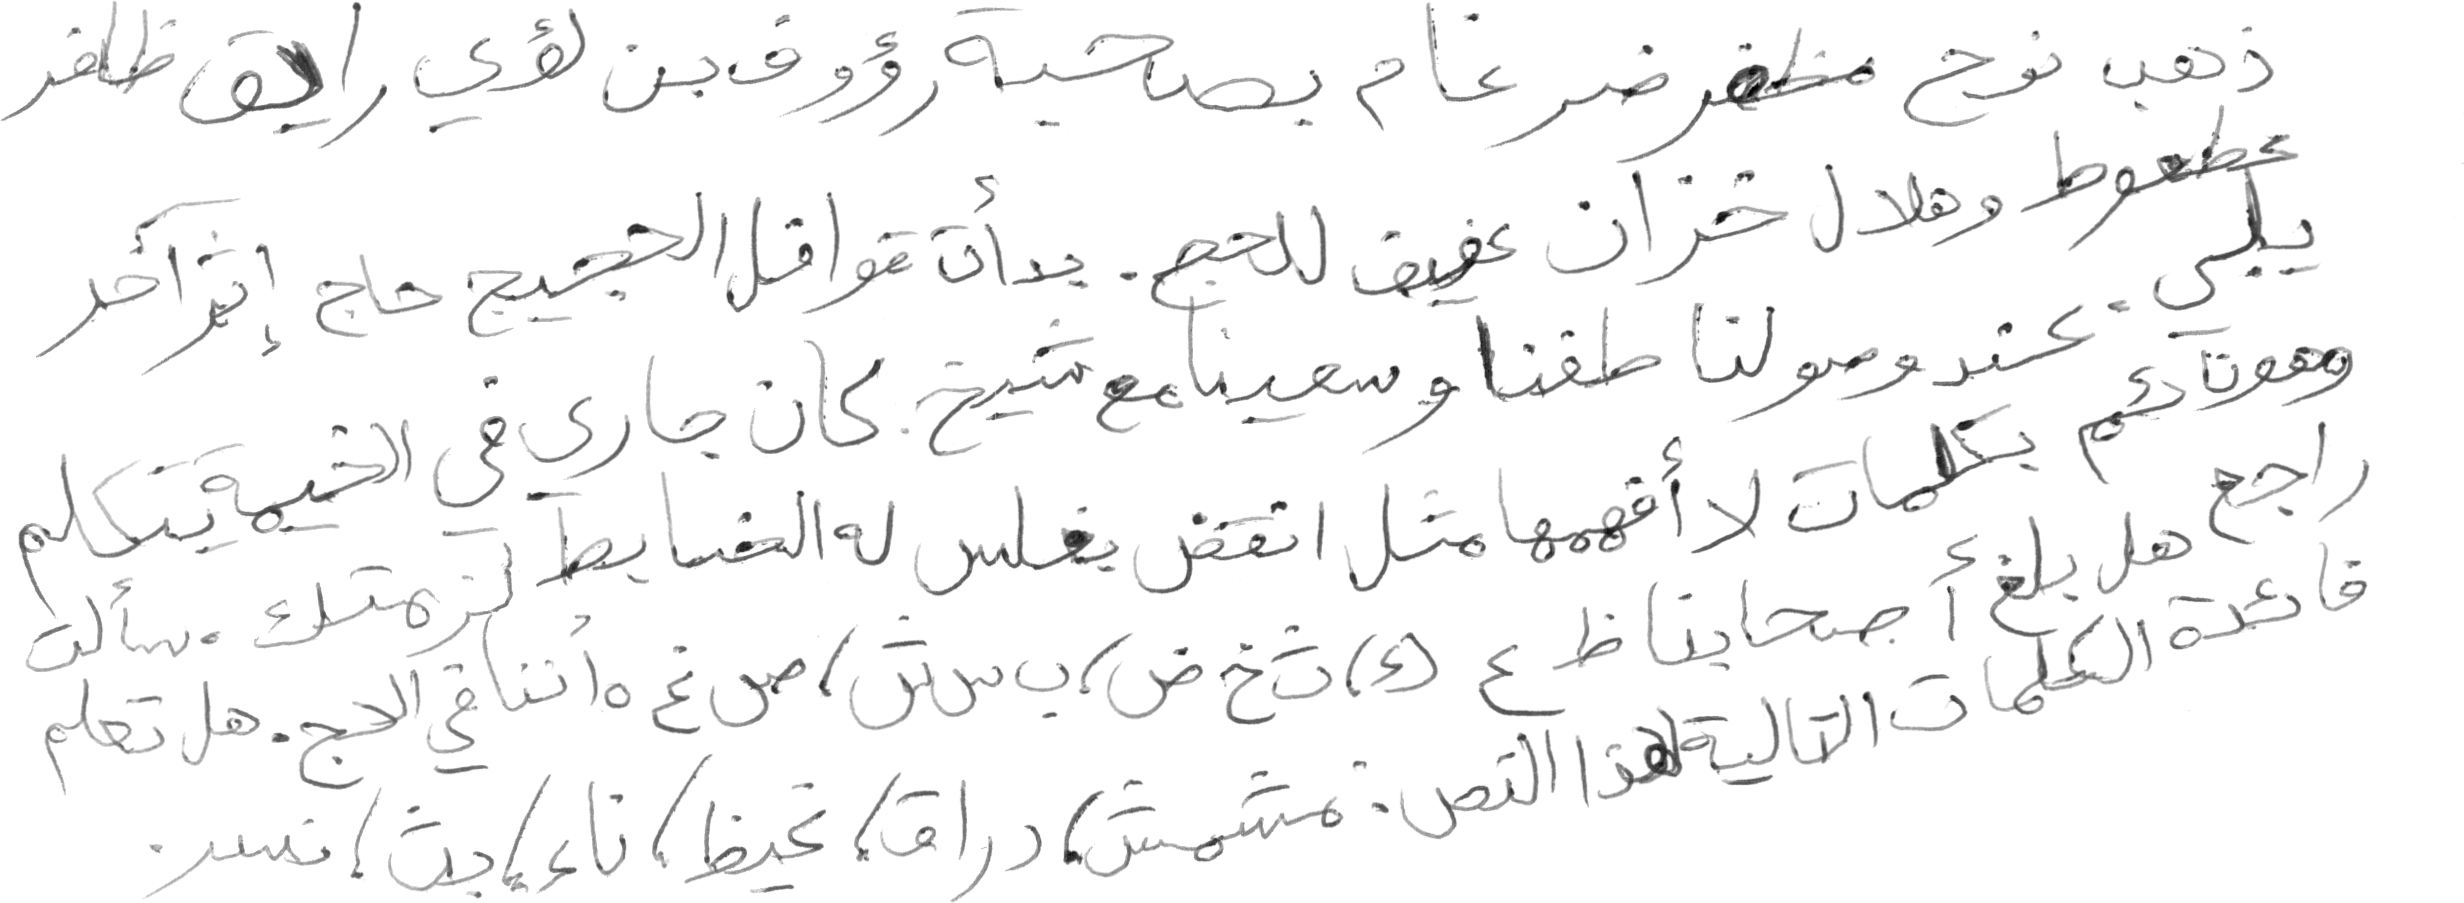 ذهب نوح مظفر ضرغام بصاحبة رؤوف بن لؤي رايق ظافر
عطعوط وهلال خزان عفيف للحج. بدأت قوافل الحجيج حاج إثر آخر
يلبي. عند وصولنا طفنا وسعينا مع شيخ. كان جاري في الخيمة يتكلم
وهو نائم بكلمات لا أفهمها مثل انقض يغلس له الضابط لزمتك. سألت
راجع هل بلغ أصحابنا ظ ع (ء)، ث خ ض، ب س ش، ص غ ه أننا في الحج. هل تعلم
فائدة الكلمات التالية لهذا النص: مشمش، دراق، غيظ، ناء، بث، نسر.